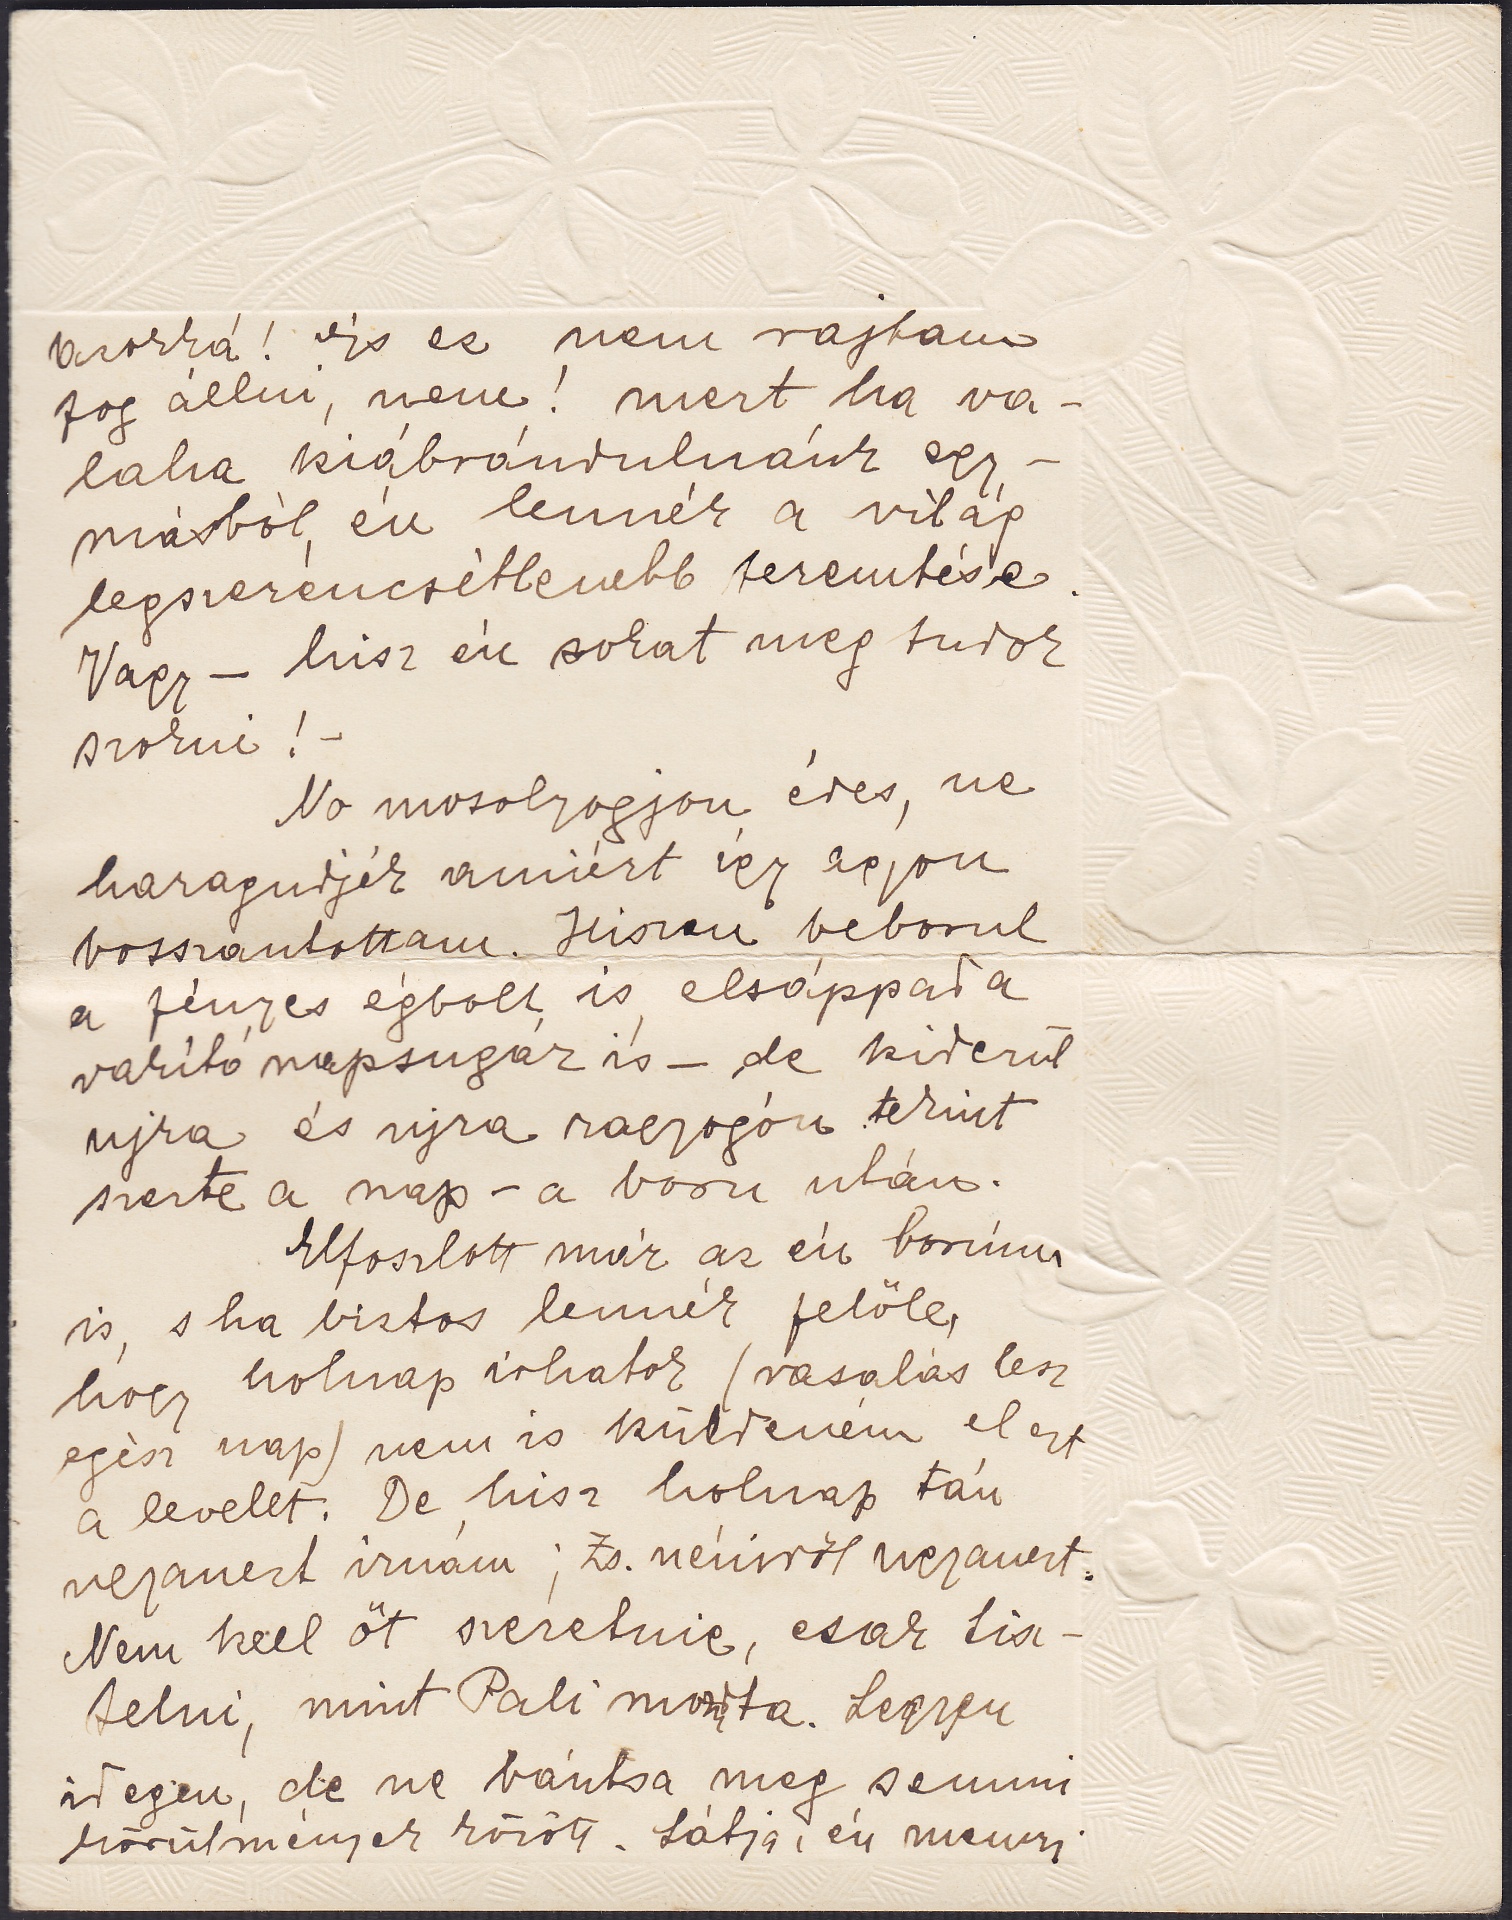 És ez nem rajtam
fog állni, nem! mert ha va-
laha kiábrándulnánk egy-
másból, én lennék a világ
legszerencsétlenebb teremtése.
Vagy – hisz én sokat meg tudok
szokni! –
No mosolyogjon édes, ne
haragudjék amiért így agyon
bosszantottam. Hiszen beborul
a fényes égbolt is, elsáppad a
vakító napsugár is – de kiderül
ujra és ujra ragyogón tekint
szerte a nap – a boru után.
Elfoszlott már az én borúm
is, s ha biztos lennék felöle,
hogy holnap irhatok (vasalás lesz
egész nap) nem is küldeném el ezt
a levelet. De hisz holnap tán
ugyanezt irnám; Zs. néniről ugyanezt.
Nem kell őt szeretnie, csak tisz-
telni, mint Pali mondta. Legyen
idegen, de ne bántsa meg semmi
körülmények között. Látja, én mennyi